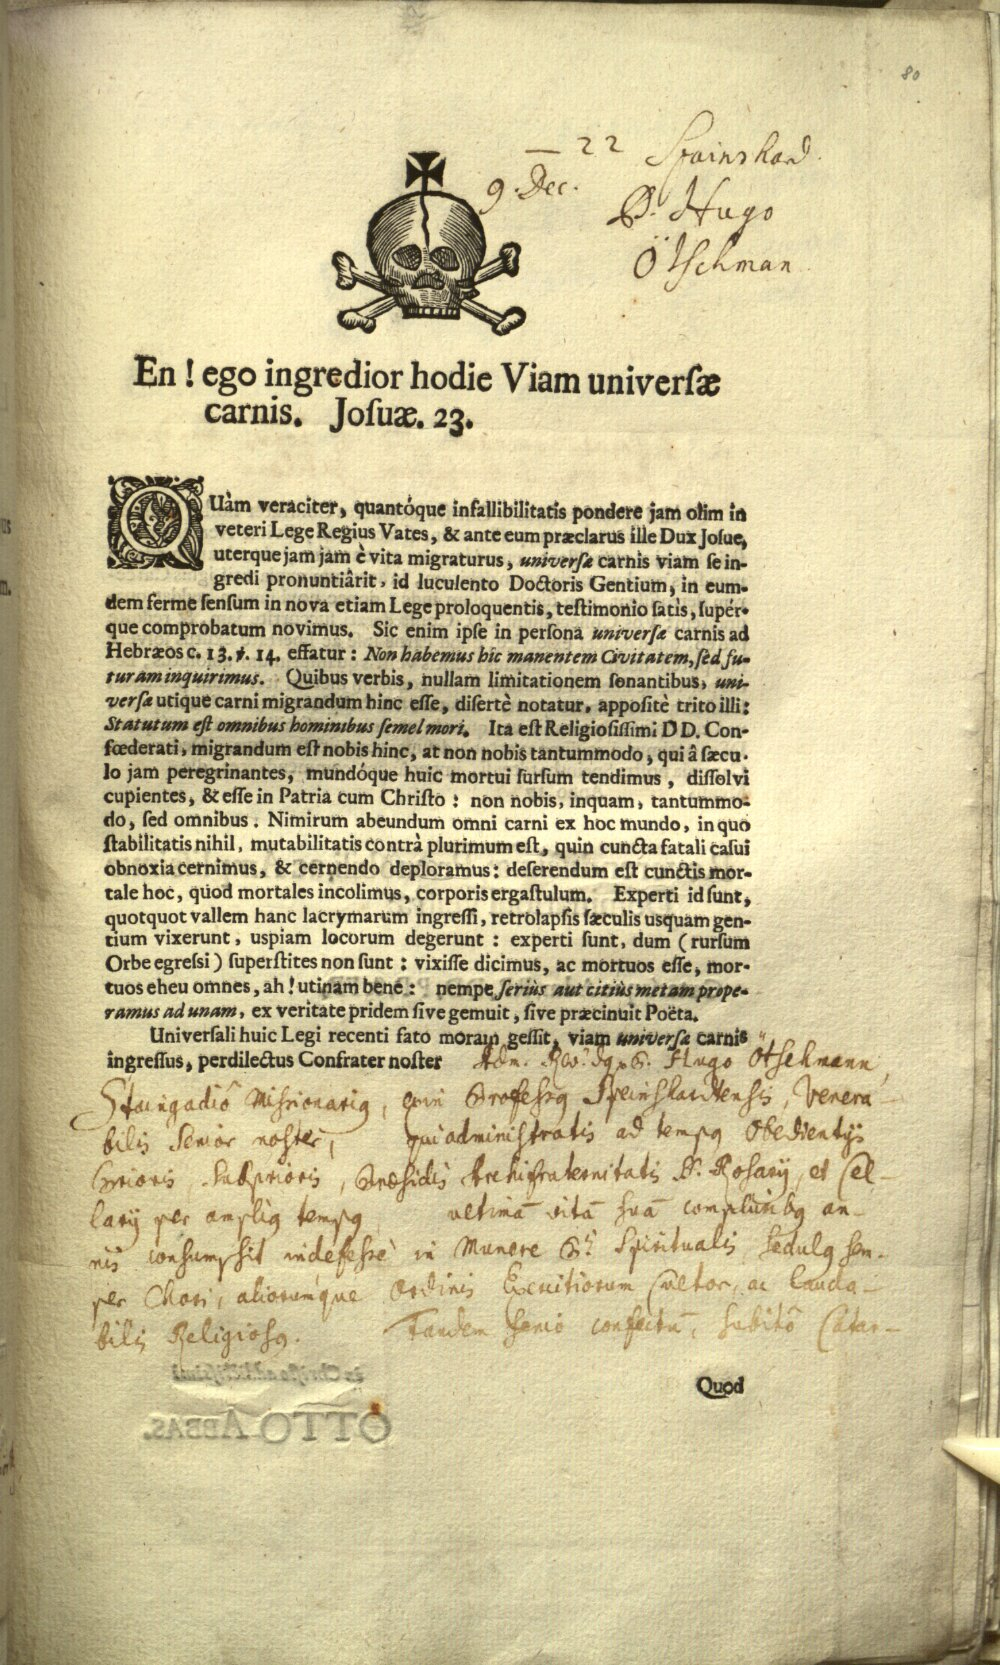 80
— 22 Spainshard.
9. Dec. P. Hugo
Ötschman
En ! ego ingredior hodie Viam universæ
carnis. Josuæ. 23.
QUàm veraciter, quantóque infallibilitatis pondere jam olim in
veteri Lege Regius Vates, & ante eum præclarus ille Dux Josue,
uterque jam jam è vita migraturus, universæ carnis viam se in-
gredi pronuntiârit, id luculento Doctoris Gentium, in eum-
dem ferme sensum in nova etiam Lege proloquentis, testimonio satis, supér-
que comprobatum novimus. Sic enim ipse in persona universæ carnis ad
Hebræos c. 13. ℣. 14. effatur : Non habemus hic manentem Civitatem, sed fu-
turam inquirimus. Quibus verbis, nullam limitationem sonantibus, uni-
versæ utique carni migrandum hinc esse, disertè notatur, appositè trito illi:
Statutum est omnibus hominibus semel mori. Ita est Religiosissimi DD. Con-
fœderati, migrandum est nobis hinc, at non nobis tantummodo, qui â sæcu-
lo jam peregrinantes, mundóque huic mortui sursum tendimus, dissolvi
cupientes, & esse in Patria cum Christo : non nobis, inquam, tantummo-
do, sed omnibus. Nimirum abeundum omni carni ex hoc mundo, in quo
stabilitatis nihil, mutabilitatis contrà plurimum est, quin cuncta fatali casui
obnoxia cernimus, & cernendo deploramus: deserendum est cunctis mor-
tale hoc, quod mortales incolimus, corporis ergastulum. Experti id sunt,
quotquot vallem hanc lacrymarum ingressi, retrolapsis sæculis usquam gen-
tium vixerunt, uspiam locorum degerunt : experti sunt, dum ( rursum
Orbe egressi ) superstites non sunt : vixisse dicimus, ac mortuos esse, mor-
tuos eheu omnes, ah ! utinam bene : nempe seriùs aut citiùs metam prope-
ramus ad unam, ex veritate pridem sive gemuit, sive præcinuit Poëta.
Universali huic Legi recenti fato morem gessit, viam universæ carnis
ingressus, perdilectus Confrater noster Adm. P. Hugo Ötschmann,
Missionarig, Professg Speinshardtensis, Venera-
bilis Senior noster, qui administratis ad tempg Obedientijs
Prioris, Subprioris, Præsidis Archifraternitatis S. Rosarij, et Cel-
larij per ampliq tempg ultimã vitã suã compluribg an-
nis consumpsit indefessè in Munere Spiritualis, sedulg sem-
per Chori, aliorumque Ordinis Exercitiorum Cultor, ac lauda-
bilis Religiosg. Tandem senio confectg, subitô Catar-
Quod
in Christo addictissimus
OTTO ABBAS.